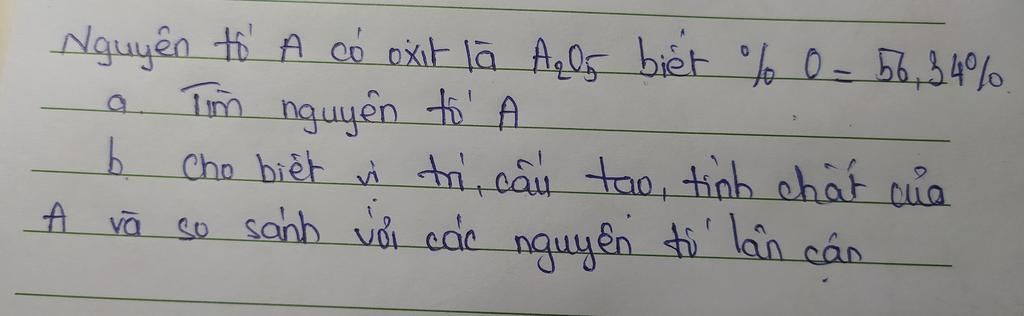 Nguyên tố A có oxit là A₂O₅ biết % O = 56,34%.
a. Tìm nguyên tố A
b. Cho biết vị trí, cấu tạo, tính chất của
A và so sánh với các nguyên tố lân cận